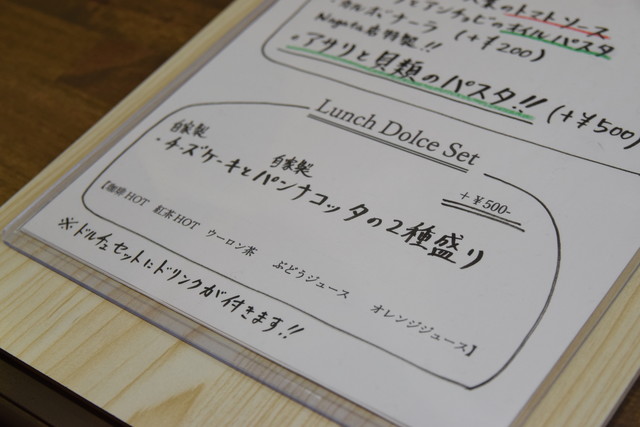 のトマトソース
とアンチョビのオイルパスタ
・カルボナーラ (+¥200)
Nagata島特製!!
・アサリと貝類のパスタ!! (+¥500)
Lunch Dolce Set
+¥500-
自家製 自家製
・チーズケーキとパンナコッタの2種盛り
【珈琲HOT 紅茶HOT ウーロン茶 ぶどうジュース オレンジジュース】
※ドルチェセットにドリンクが付きます!!